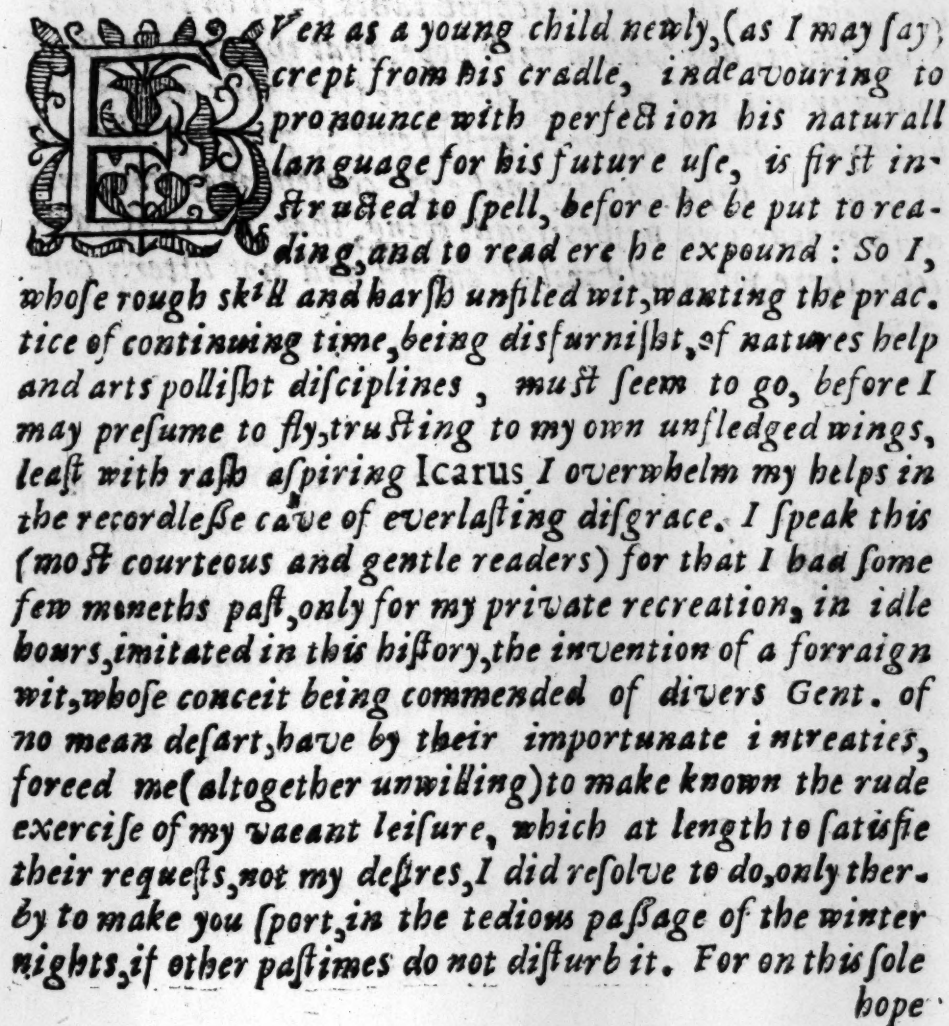 EVen as a young child newly,(as I may ſay)
crept from his cradle, indeavouring to
pronounce with perfection his naturall
language for his future uſe, is first in-
structed to ſpell, before he be put to rea-
ding,and to read ere he expound : So I,
whoſe rough skill and harſh unfiled wit,wanting the prac-
tice of continuing time,being disfurniſht,of natures help
and arts polliſht diſciplines, must ſeem to go, before I
may preſume to fly,trusting to my own unfledged wings,
leaſt with raſh aſpiring Icarus I overwhelm my helps in
the recordleſſe cave of everlaſting diſgrace. I ſpeak this
(most courteous and gentle readers) for that I had ſome
few moneths paſt,only for my private recreation, in idle
hours,imitated in this hiſtory,the invention of a forraign
wit,whoſe conceit being commended of divers Gent. of
no mean deſart,have by their importunate intreaties,
forced me(altogether unwilling)to make known the rude
exerciſe of my vacant leiſure, which at length to ſatisfie
their requeſts,not my deſires,I did reſolve to do,only ther-
by to make you ſport,in the tedious paſſage of the winter
nights,if other paſtimes do not diſturb it. For on this ſole
hope